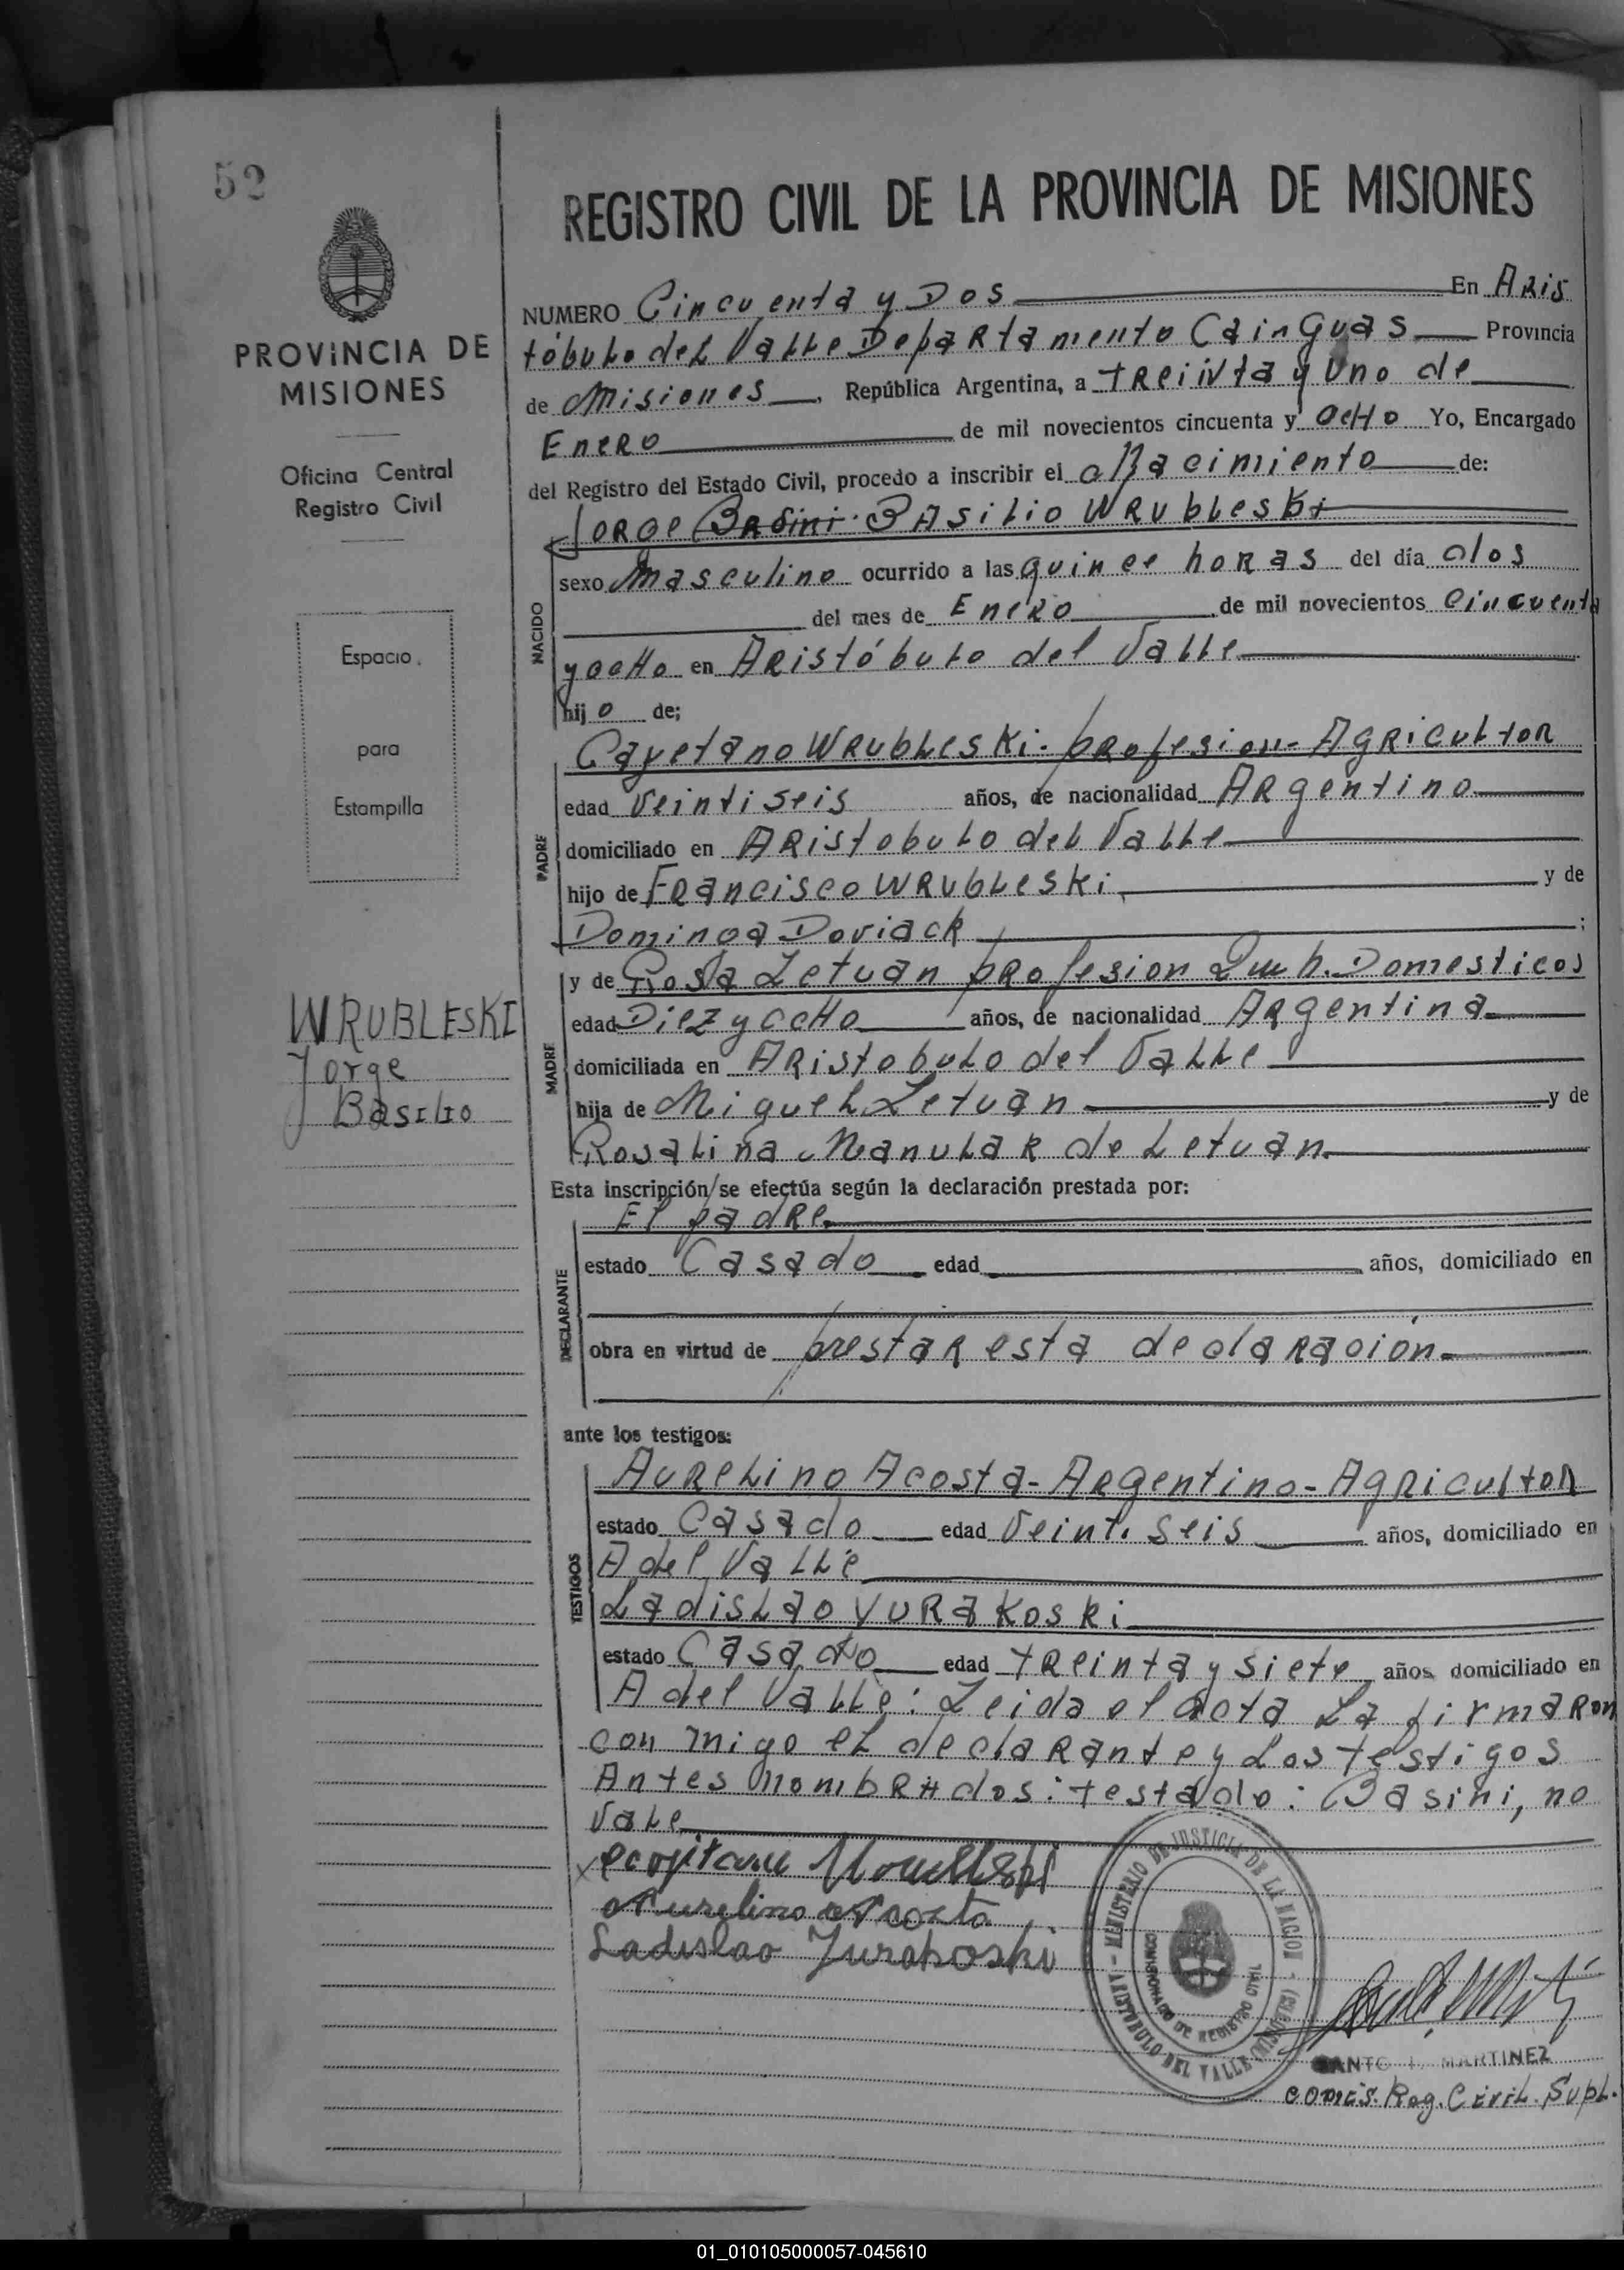 52
PROVINCIA DE
MISIONES
Oficina Central
Registro Civil
Espacio
para
Estampilla
WRUBLESKI
Jorge
Basilio
REGISTRO CIVIL DE LA PROVINCIA DE MISIONES
NUMERO Cincuenta y Dos En Aris
tóbulo del Valle Departamento Cainguas Provincia
de Misiones, República Argentina, a treinta y Uno de
Enero de mil novecientos cincuenta y ocho Yo, Encargado
del Registro del Estado Civil, procedo a inscribir el Nacimiento de:
Jorge Basini. Basilio Wrubleski
NACIDO
sexo Masculino ocurrido a las quince horas del día dos
del mes de Enero de mil novecientos cincuenta
y ocho en Aristóbulo del Valle
hijo de;
PADRE
Cayetano Wrubleski. profesion- Agricultor
edad Veintiseis años, de nacionalidad Argentino
domiciliado en Aristobulo del Valle
hijo de Francisco Wrubleski y de
Dominga Doviack ;
MADRE
y de Rosa Letuan profesion Domesticos
edad Diez y ocho años, de nacionalidad Argentina
domiciliada en Aristobulo del Valle
hija de Miguel Letuan y de
Rosalina Manulak de Letuan.
Esta inscripción se efectúa según la declaración prestada por:
DECLARANTE
El padre
estado Casado edad años, domiciliado en
obra en virtud de prestar esta declaración.
ante los testigos:
TESTIGOS
Aurelino Acosta- Argentino- Agricultor
estado Casado edad Veinti seis años, domiciliado en
A del Valle
Ladislao Yurakoski
estado Casado edad treinta y siete años domiciliado en
A del Valle: Leida el acta La firmaron
con migo el declarante y Los testigos
Antes nombrados: testado: Basini, no
Vale
Aurelino Acosta
Ladislao Jurakoski
MINISTERIO DE JUSTICIA DE LA NACION - ARISTOBULO DEL VALLE (MISIONES) -
COMISIONADO DE REGISTRO CIVIL
SANTO MARTINEZ
comis. Reg. Civil. Supl.
01_010105000057-045610